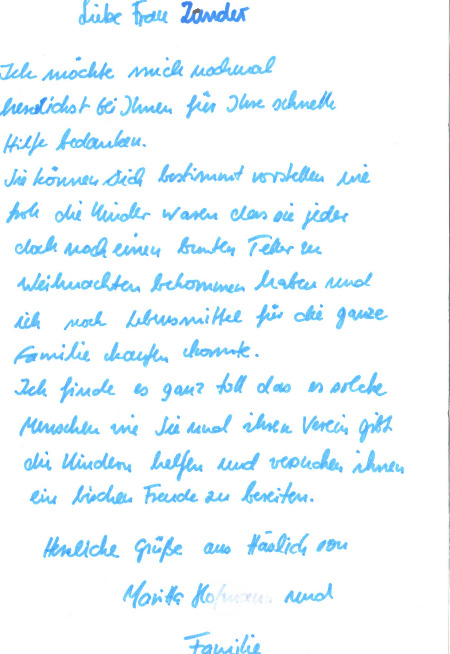 Liebe Frau Zander
Ich möchte mich nochmal
herzlichst bei Ihnen für Ihre schnelle
Hilfe bedanken.
Sie können sich bestimmt vorstellen wie
froh die Kinder waren das sie jeder
doch noch einen bunten Teller zu
Weihnachten bekommen haben und
ich noch Lebensmittel für die ganze
Familie kaufen konnte.
Ich finde es ganz toll das es solche
Menschen wie Sie und ihren Verein gibt
die Kindern helfen und versuchen ihnen
ein bischen Freude zu bereiten.
Herzliche Grüße aus Haslich von
Maritta und
Familie